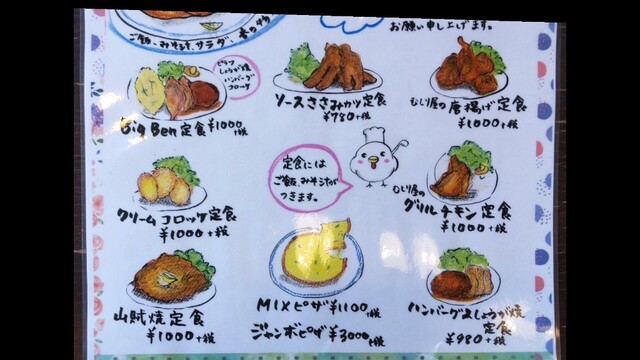 ご飯、みそ汁、サラダ、香の物
お願い申し上げます。
ピラフ
しょうが焼
ハンバーグ
コロッケ
Big Ben定食 ¥1000+税
ソースささみカツ定食
¥780+税
むしり屋の唐揚げ定食
¥1000+税
クリームコロッケ定食
¥1000+税
定食には
ご飯、みそ汁が
つきます。
むしり屋の
グリルチキン定食
¥1000+税
山賊焼定食
¥1000+税
MIXピザ ¥1100+税
ジャンボピザ ¥3000+税
ハンバーグ&しょうが焼
定食
¥980+税